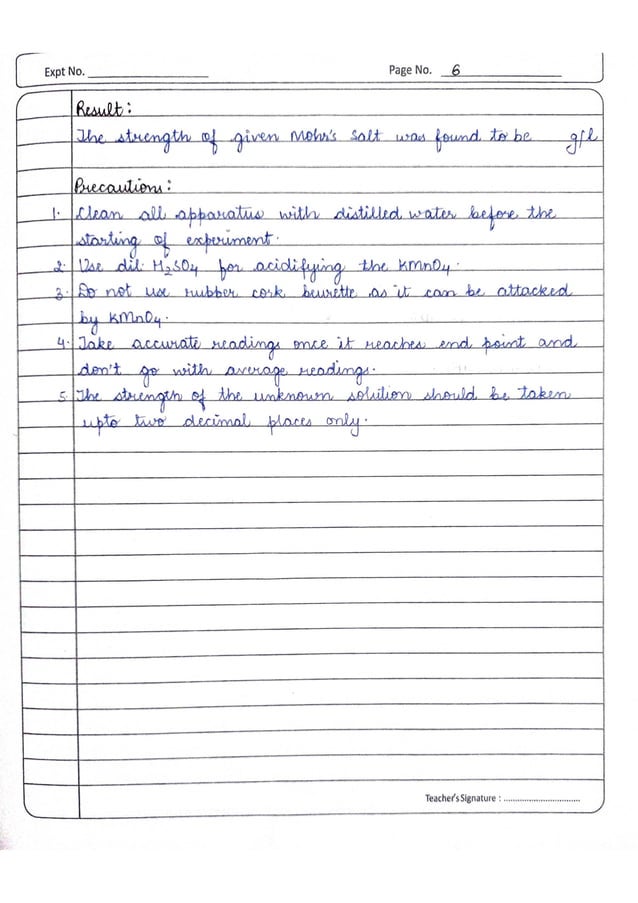 Expt No.
Page No. 6
Result:
The strength of given Mohr's Salt was found to be g/l
Precautions:
1. Clean all apparatus with distilled water before the
starting of experiment.
2. Use dil. H₂SO₄ for acidifying the KMnO₄.
3. Do not use rubber cork beurette as it can be attacked
by KMnO₄.
4. Take accurate readings once it reaches end point and
don't go with average readings.
5. The strength of the unknown solution should be taken
upto two decimal places only.
Teacher's Signature : ................................